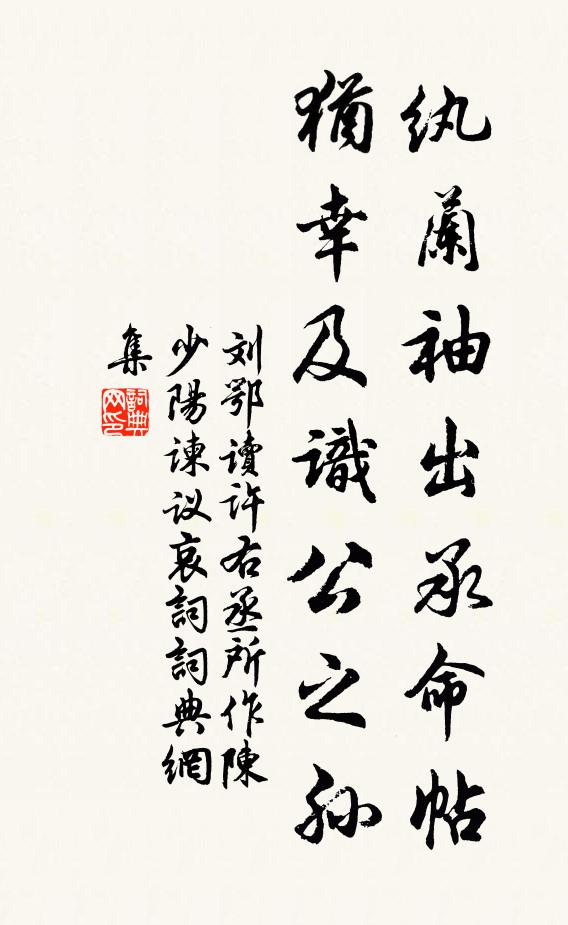 纨蘭袖出承命帖
猶幸及識公之孙
刘鄂讀许右丞所作陳
少陽谏议哀詞詞典網
集
詞典
网印